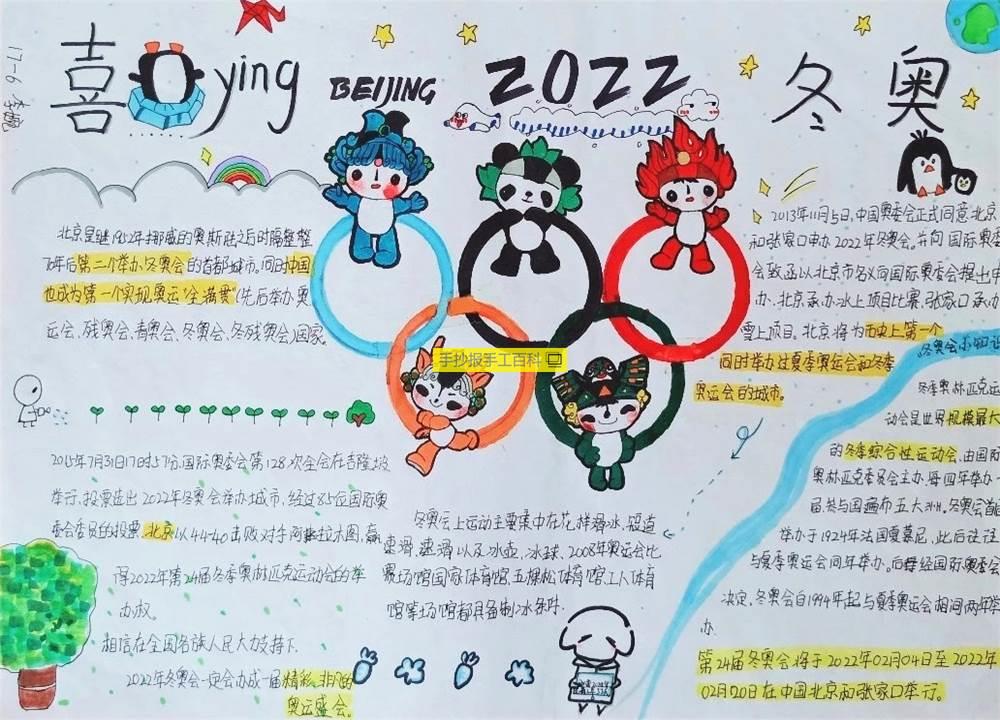 喜ying BEIJING 2022 冬奥
17-6
北京是继1952年挪威的奥斯陆之后时隔整整
70年后第二个举办冬奥会的首都城市。同时中国
也成为第一个实现奥运“全满贯”(先后举办奥
运会、残奥会、青奥会、冬奥会、冬残奥会)国家。
2015年7月31日17时57分,国际奥委会第128次全会在吉隆坡
举行,投票选出2022年冬奥会举办城市,经过85位国际奥
委会委员的投票,北京以44-40击败对手阿拉木图,赢
得2022年第24届冬季奥林匹克运动会的举
办权。
相信在全国各族人民大力支持下.
2022年冬奥会一定会办成一届精彩、非凡的
奥运盛会。
手抄报手工百科
冬奥会上运动主要集中在花样滑冰、短道
速滑、速滑以及冰壶、冰球。2008年奥运会比
赛场馆国家体育馆、五棵松体育馆、工人体育
馆等场馆都具备制冰条件.
2013年11月5日,中国奥委会正式同意北京
和张家口申办2022年冬奥会。并向国际奥委
会致函以北京市名义向国际奥委会提出申
办、北京承办冰上项目比赛,张家口承办
雪上项目。北京将为历史上第一个
同时举办过夏季奥运会和冬季
奥运会的城市。
冬奥会小知识
冬季奥林匹克运
动会是世界规模最大
的冬季综合性运动会,由国际
奥林匹克委员会主办,每四年举办一
届.参与国遍布五大洲,冬奥会首届
举办于1924年法国夏慕尼,此后往往
与夏季奥运会同年举办,后经国际奥委会
决定,冬奥会自1994年起与夏季奥运会相间两年举
办.
第24届冬奥会将于2022年02月04日至2022年
02月20日在中国北京和张家口举行。